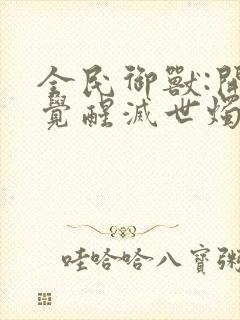 全民御獸:開
覺醒滅世燭
哇哈哈八寶粥